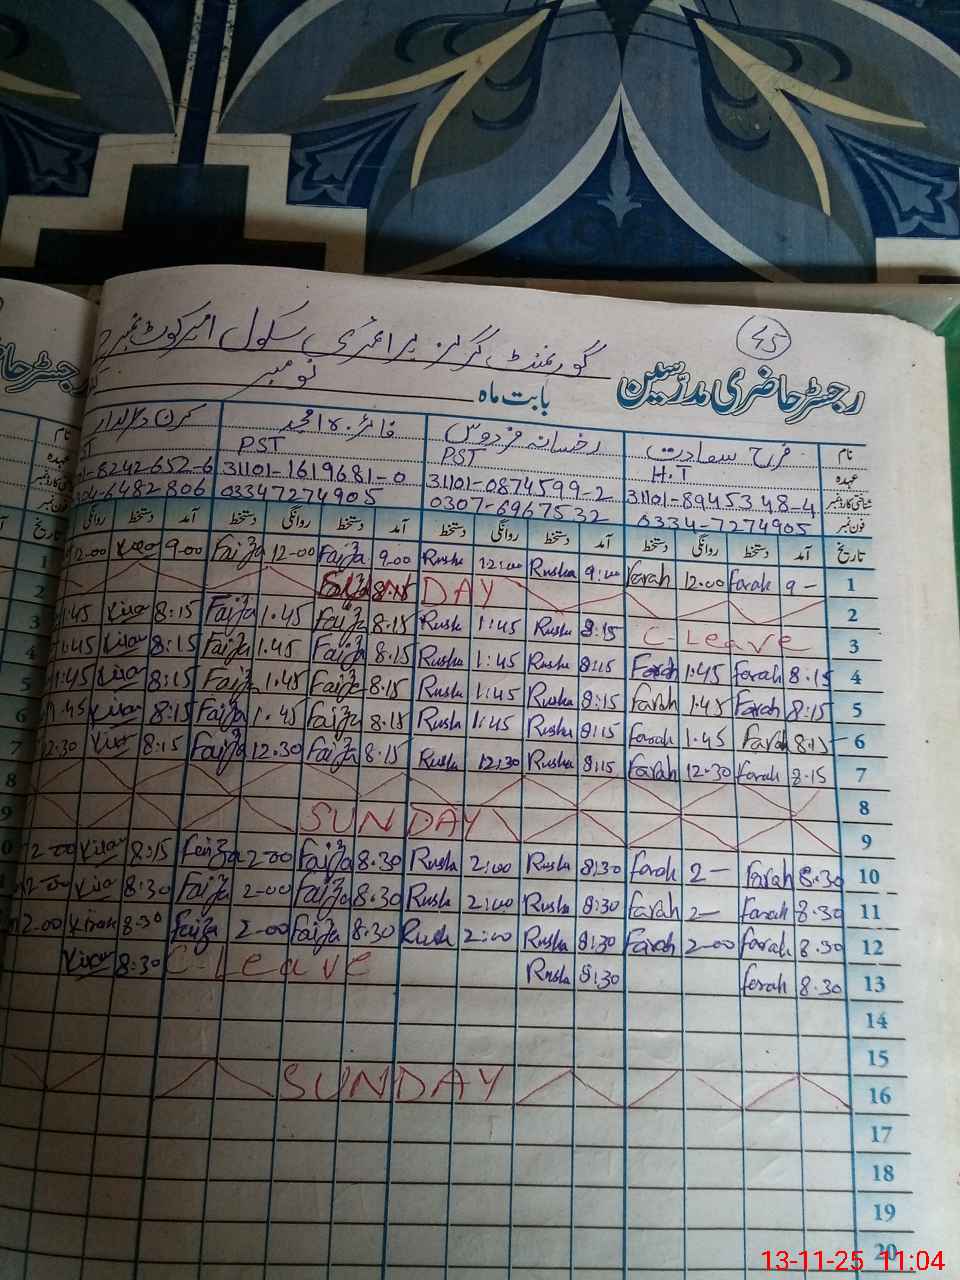 45
گورنمنٹ گرلز پرائمری سکول امیر کوٹ نمبر 2
رجسٹر حاضری مدرسین
بابت ماہ نومبر
نام فرح سعادت رخسانہ فردوس
عہدہ H.T PST PST
31101-8945348-4 31101-0874599-2 31101-1619681-0 -8242652-6
فون نمبر 0334-7274905 0307-6967532 03347274905 6482806
تاریخ آمد دستخط روانگی دستخط آمد دستخط روانگی دستخط آمد دستخط روانگی دستخط آمد دستخط روانگی
1 9 - Farah 12.00 Farah 9:00 Rusha 12:00 Rusha 9.00 Faiza 12-00 Faiza 9-00 Kiran 12-00
2 SUNDAY
3 C-Leave 8:15 Rusha 1:45 Rusha 8.15 Faiza 1.45 Faiza 8:15 Kiran 1.45
4 8:15 Farah 1.45 Farah 8:15 Rusha 1:45 Rusha 8.15 Faiza 1.45 Faiza 8:15 Kiran 1.45
5 8:15 Farah 1.45 Farah 8:15 Rusha 1:45 Rusha 8.15 Faiza 1.45 Faiza 8:15 Kiran 1:45
6 8:15 Farah 1.45 Farah 8:15 Rusha 1:45 Rusha 8.15 Faiza 1.45 Faiza 8:15 Kiran 1.45
7 8.15 Farah 12.30 Farah 8:15 Rusha 12:30 Rusha 8.15 Faiza 12.30 Faiza 8:15 Kiran 12.30
8
9 SUNDAY
10 8.30 Farah 2- Farah 8:30 Rusha 2:00 Rusha 8.30 Faiza 2-00 Faiza 8:15 Kiran 2-00
11 8.30 Farah 2- Farah 8:30 Rusha 2:00 Rusha 8.30 Faiza 2-00 Faiza 8:30 Kiran 2-00
12 8.30 Farah 2-00 Farah 8:30 Rusha 2:00 Rusha 8.30 Faiza 2-00 Faiza 8-30 Kiran 2-00
13 8.30 Farah 8:30 Rusha C-Leave 8:30 Kiran
14
15
16 SUNDAY
17
18
19
20
13-11-25 11:04